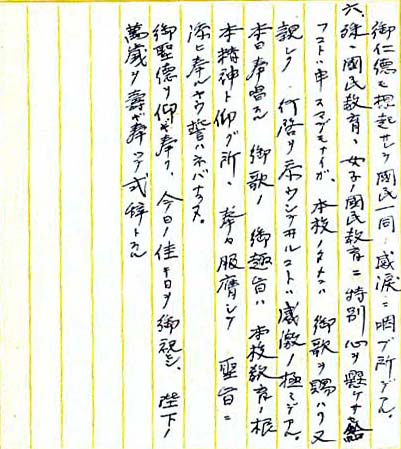 御仁徳モ想起サレテ国民一同ノ感涙ニ咽ブ所デアル。
六、殊ニ国民教育、女子ノ国民教育ニ特別心ヲ懸ケサセ
フコトハ申スマデモナイガ、本校ノタメニハ 御歌ヲ賜ハリ又
親シク 行啓ヲ忝ウシタルコトハ感激ノ極ミデアル。
本日奉唱スル 御歌ノ 御趣旨ハ 本校教育ノ根
本精神ト仰グ所、夢々服膺シテ 聖旨ニ
添ヒ奉ルヤウ誓ハネバナラヌ。
御聖徳ヲ仰ギ奉リ、今日ノ佳キ日ヲ御祝シ、陛下ノ
萬歳ヲ壽ギ奉ツテ式辞トスル